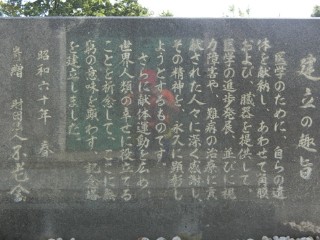 建立の趣旨
医学のために、自らの遺
体を献納し、あわせて角膜
および、臓器を提供して
医学の進歩発展、並びに視
力障害や、難病の治療に貢
献された人々に深く感謝し、
その精神を、永久に顕彰し
ようとするものです。
さらに献体運動を広め、
世界人類の幸せに役立てる
ことを祈念して、ここに無
窮の意味を表わす、記念塔
を建立しました。
昭和六十年 春
寄贈 財団法人 不老会